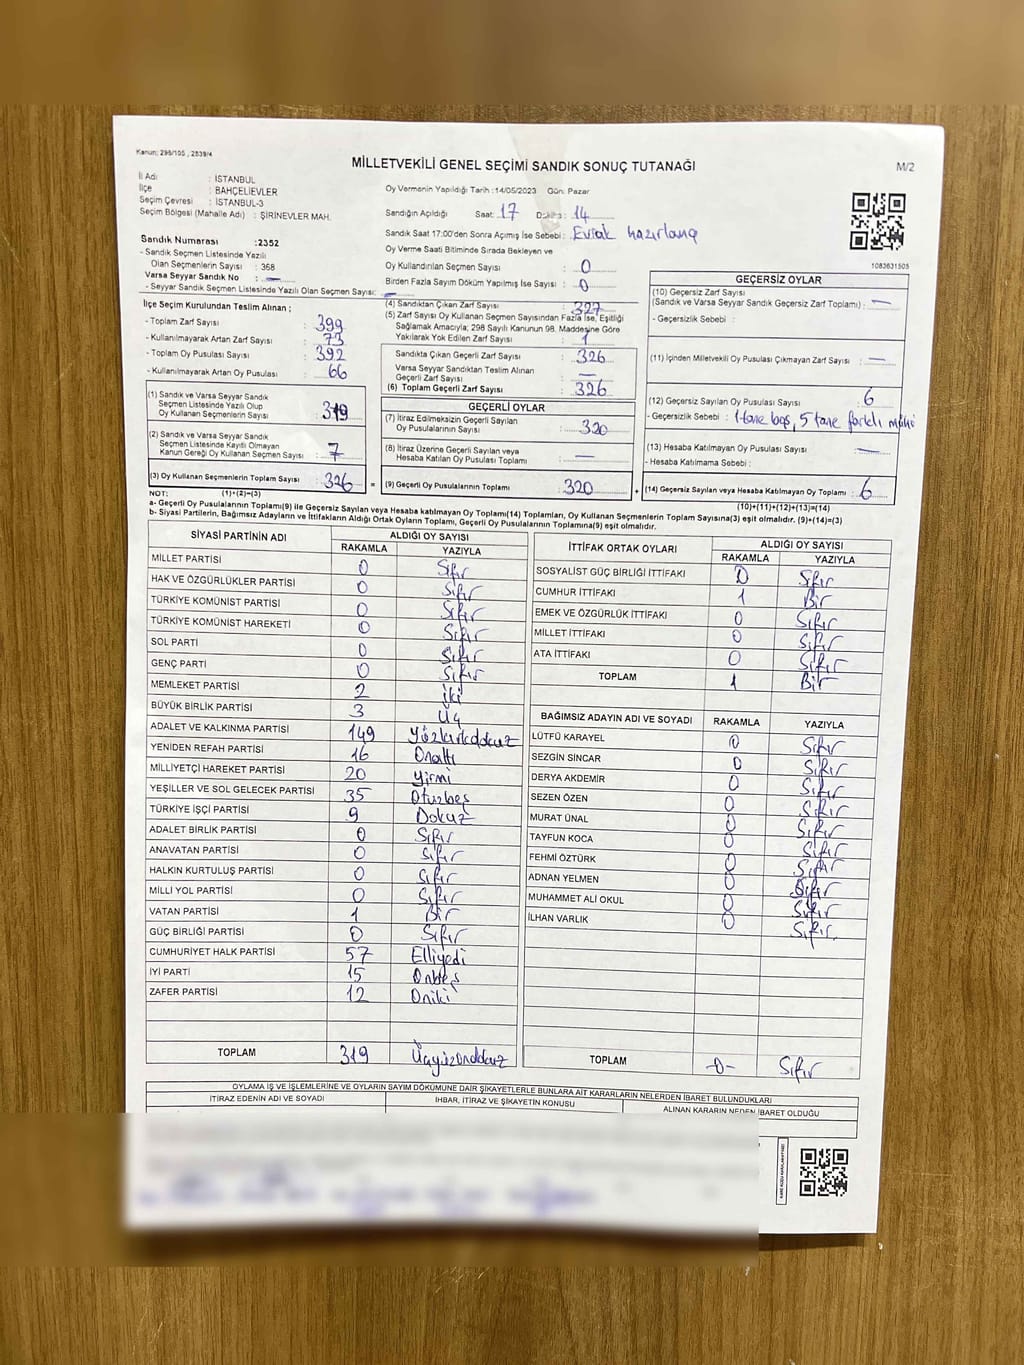 Kanun; 298/105 , 2839/4
MİLLETVEKİLİ GENEL SEÇİMİ SANDIK SONUÇ TUTANAĞI
M/2
İl Adı : İSTANBUL
İlçe : BAHÇELİEVLER
Seçim Çevresi : İSTANBUL-3
Seçim Bölgesi (Mahalle Adı) : ŞİRİNEVLER MAH.
Sandık Numarası : 2352
- Sandık Seçmen Listesinde Yazılı
Olan Seçmenlerin Sayısı : 368
Varsa Seyyar Sandık No : —
- Seyyar Sandık Seçmen Listesinde Yazılı Olan Seçmen Sayısı: —
Oy Vermenin Yapıldığı Tarih :14/05/2023 Gün: Pazar
Sandığın Açıldığı Saat: 17 Dakika: 14
Sandık Saat 17:00'den Sonra Açımış İse Sebebi : Evrak hazırlama
Oy Verme Saati Bitiminde Sırada Bekleyen ve
Oy Kullandırılan Seçmen Sayısı : 0
Birden Fazla Sayım Döküm Yapılmış İse Sayısı : 0
1083631505
İlçe Seçim Kurulundan Teslim Alınan ;
- Toplam Zarf Sayısı : 399
- Kullanılmayarak Artan Zarf Sayısı : 73
- Toplam Oy Pusulası Sayısı : 392
- Kullanılmayarak Artan Oy Pusulası : 66
(1) Sandık ve Varsa Seyyar Sandık
Seçmen Listesinde Yazılı Olup
Oy Kullanan Seçmenlerin Sayısı : 319
(2) Sandık ve Varsa Seyyar Sandık
Seçmen Listesinde Kayıtlı Olmayan
Kanun Gereği Oy Kullanan Seçmen Sayısı : 7
(3) Oy Kullanan Seçmenlerin Toplam Sayısı : 326
(4) Sandıktan Çıkan Zarf Sayısı : 327
(5) Zarf Sayısı Oy Kullanan Seçmen Sayısından Fazla İse, Eşitliği
Sağlamak Amacıyla; 298 Sayılı Kanunun 98. Maddesine Göre
Yakılarak Yok Edilen Zarf Sayısı : 1
Sandıkta Çıkan Geçerli Zarf Sayısı : 326
Varsa Seyyar Sandıktan Teslim Alınan
Geçerli Zarf Sayısı : —
(6) Toplam Geçerli Zarf Sayısı : 326
GEÇERLİ OYLAR
(7) İtiraz Edilmeksizin Geçerli Sayılan
Oy Pusulalarının Sayısı : 320
(8) İtiraz Üzerine Geçerli Sayılan veya
Hesaba Katılan Oy Pusulası Toplamı : —
= (9) Geçerli Oy Pusulalarının Toplamı : 320
GEÇERSİZ OYLAR
(10) Geçersiz Zarf Sayısı
(Sandık ve Varsa Seyyar Sandık Geçersiz Zarf Toplamı) : —
- Geçersizlik Sebebi :
(11) İçinden Milletvekili Oy Pusulası Çıkmayan Zarf Sayısı : —
(12) Geçersiz Sayılan Oy Pusulası Sayısı : 6
- Geçersizlik Sebebi : 1 tane boş, 5 tane farklı mühür
(13) Hesaba Katılmayan Oy Pusulası Sayısı : —
- Hesaba Katılmama Sebebi :
+ (14) Geçersiz Sayılan veya Hesaba Katılmayan Oy Toplamı : 6
NOT: (1)+(2)=(3)
(10)+(11)+(12)+(13)=(14)
a- Geçerli Oy Pusulalarının Toplamı(9) ile Geçersiz Sayılan veya Hesaba katılmayan Oy Toplamı(14) Toplamları, Oy Kullanan Seçmenlerin Toplam Sayısına(3) eşit olmalıdır. (9)+(14)=(3)
b- Siyasi Partilerin, Bağımsız Adayların ve İttifakların Aldığı Ortak Oyların Toplamı, Geçerli Oy Pusulalarının Toplamına(9) eşit olmalıdır.
SİYASİ PARTİNİN ADI ALDIĞI OY SAYISI
RAKAMLA YAZIYLA
MİLLET PARTİSİ 0 Sıfır
HAK VE ÖZGÜRLÜKLER PARTİSİ 0 Sıfır
TÜRKİYE KOMÜNİST PARTİSİ 0 Sıfır
TÜRKİYE KOMÜNİST HAREKETİ 0 Sıfır
SOL PARTİ 0 Sıfır
GENÇ PARTİ 0 Sıfır
MEMLEKET PARTİSİ 2 İki
BÜYÜK BİRLİK PARTİSİ 3 Üç
ADALET VE KALKINMA PARTİSİ 149 Yüzkırkdokuz
YENİDEN REFAH PARTİSİ 16 Onaltı
MİLLİYETÇİ HAREKET PARTİSİ 20 Yirmi
YEŞİLLER VE SOL GELECEK PARTİSİ 35 Otuzbeş
TÜRKİYE İŞÇİ PARTİSİ 9 Dokuz
ADALET BİRLİK PARTİSİ 0 Sıfır
ANAVATAN PARTİSİ 0 Sıfır
HALKIN KURTULUŞ PARTİSİ 0 Sıfır
MİLLİ YOL PARTİSİ 0 Sıfır
VATAN PARTİSİ 1 Bir
GÜÇ BİRLİĞİ PARTİSİ 0 Sıfır
CUMHURİYET HALK PARTİSİ 57 Elliyedi
İYİ PARTİ 15 Onbeş
ZAFER PARTİSİ 12 Oniki
TOPLAM 319 Üçyüzondokuz
İTTİFAK ORTAK OYLARI ALDIĞI OY SAYISI
RAKAMLA YAZIYLA
SOSYALİST GÜÇ BİRLİĞİ İTTİFAKI 0 Sıfır
CUMHUR İTTİFAKI 1 Bir
EMEK VE ÖZGÜRLÜK İTTİFAKI 0 Sıfır
MİLLET İTTİFAKI 0 Sıfır
ATA İTTİFAKI 0 Sıfır
TOPLAM 1 Bir
BAĞIMSIZ ADAYIN ADI VE SOYADI RAKAMLA YAZIYLA
LÜTFÜ KARAYEL 0 Sıfır
SEZGİN SİNCAR 0 Sıfır
DERYA AKDEMİR 0 Sıfır
SEZEN ÖZEN 0 Sıfır
MURAT ÜNAL 0 Sıfır
TAYFUN KOCA 0 Sıfır
FEHMİ ÖZTÜRK 0 Sıfır
ADNAN YELMEN 0 Sıfır
MUHAMMET ALİ OKUL 0 Sıfır
İLHAN VARLIK 0 Sıfır
TOPLAM -0- Sıfır
OYLAMA İŞ VE İŞLEMLERİNE VE OYLARIN SAYIM DÖKÜMÜNE DAİR ŞİKAYETLERLE BUNLARA AİT KARARLARIN NELERDEN İBARET BULUNDUKLARI
İTİRAZ EDENİN ADI VE SOYADI İHBAR, İTİRAZ VE ŞİKAYETİN KONUSU ALINAN KARARIN NEDEN İBARET OLDUĞU